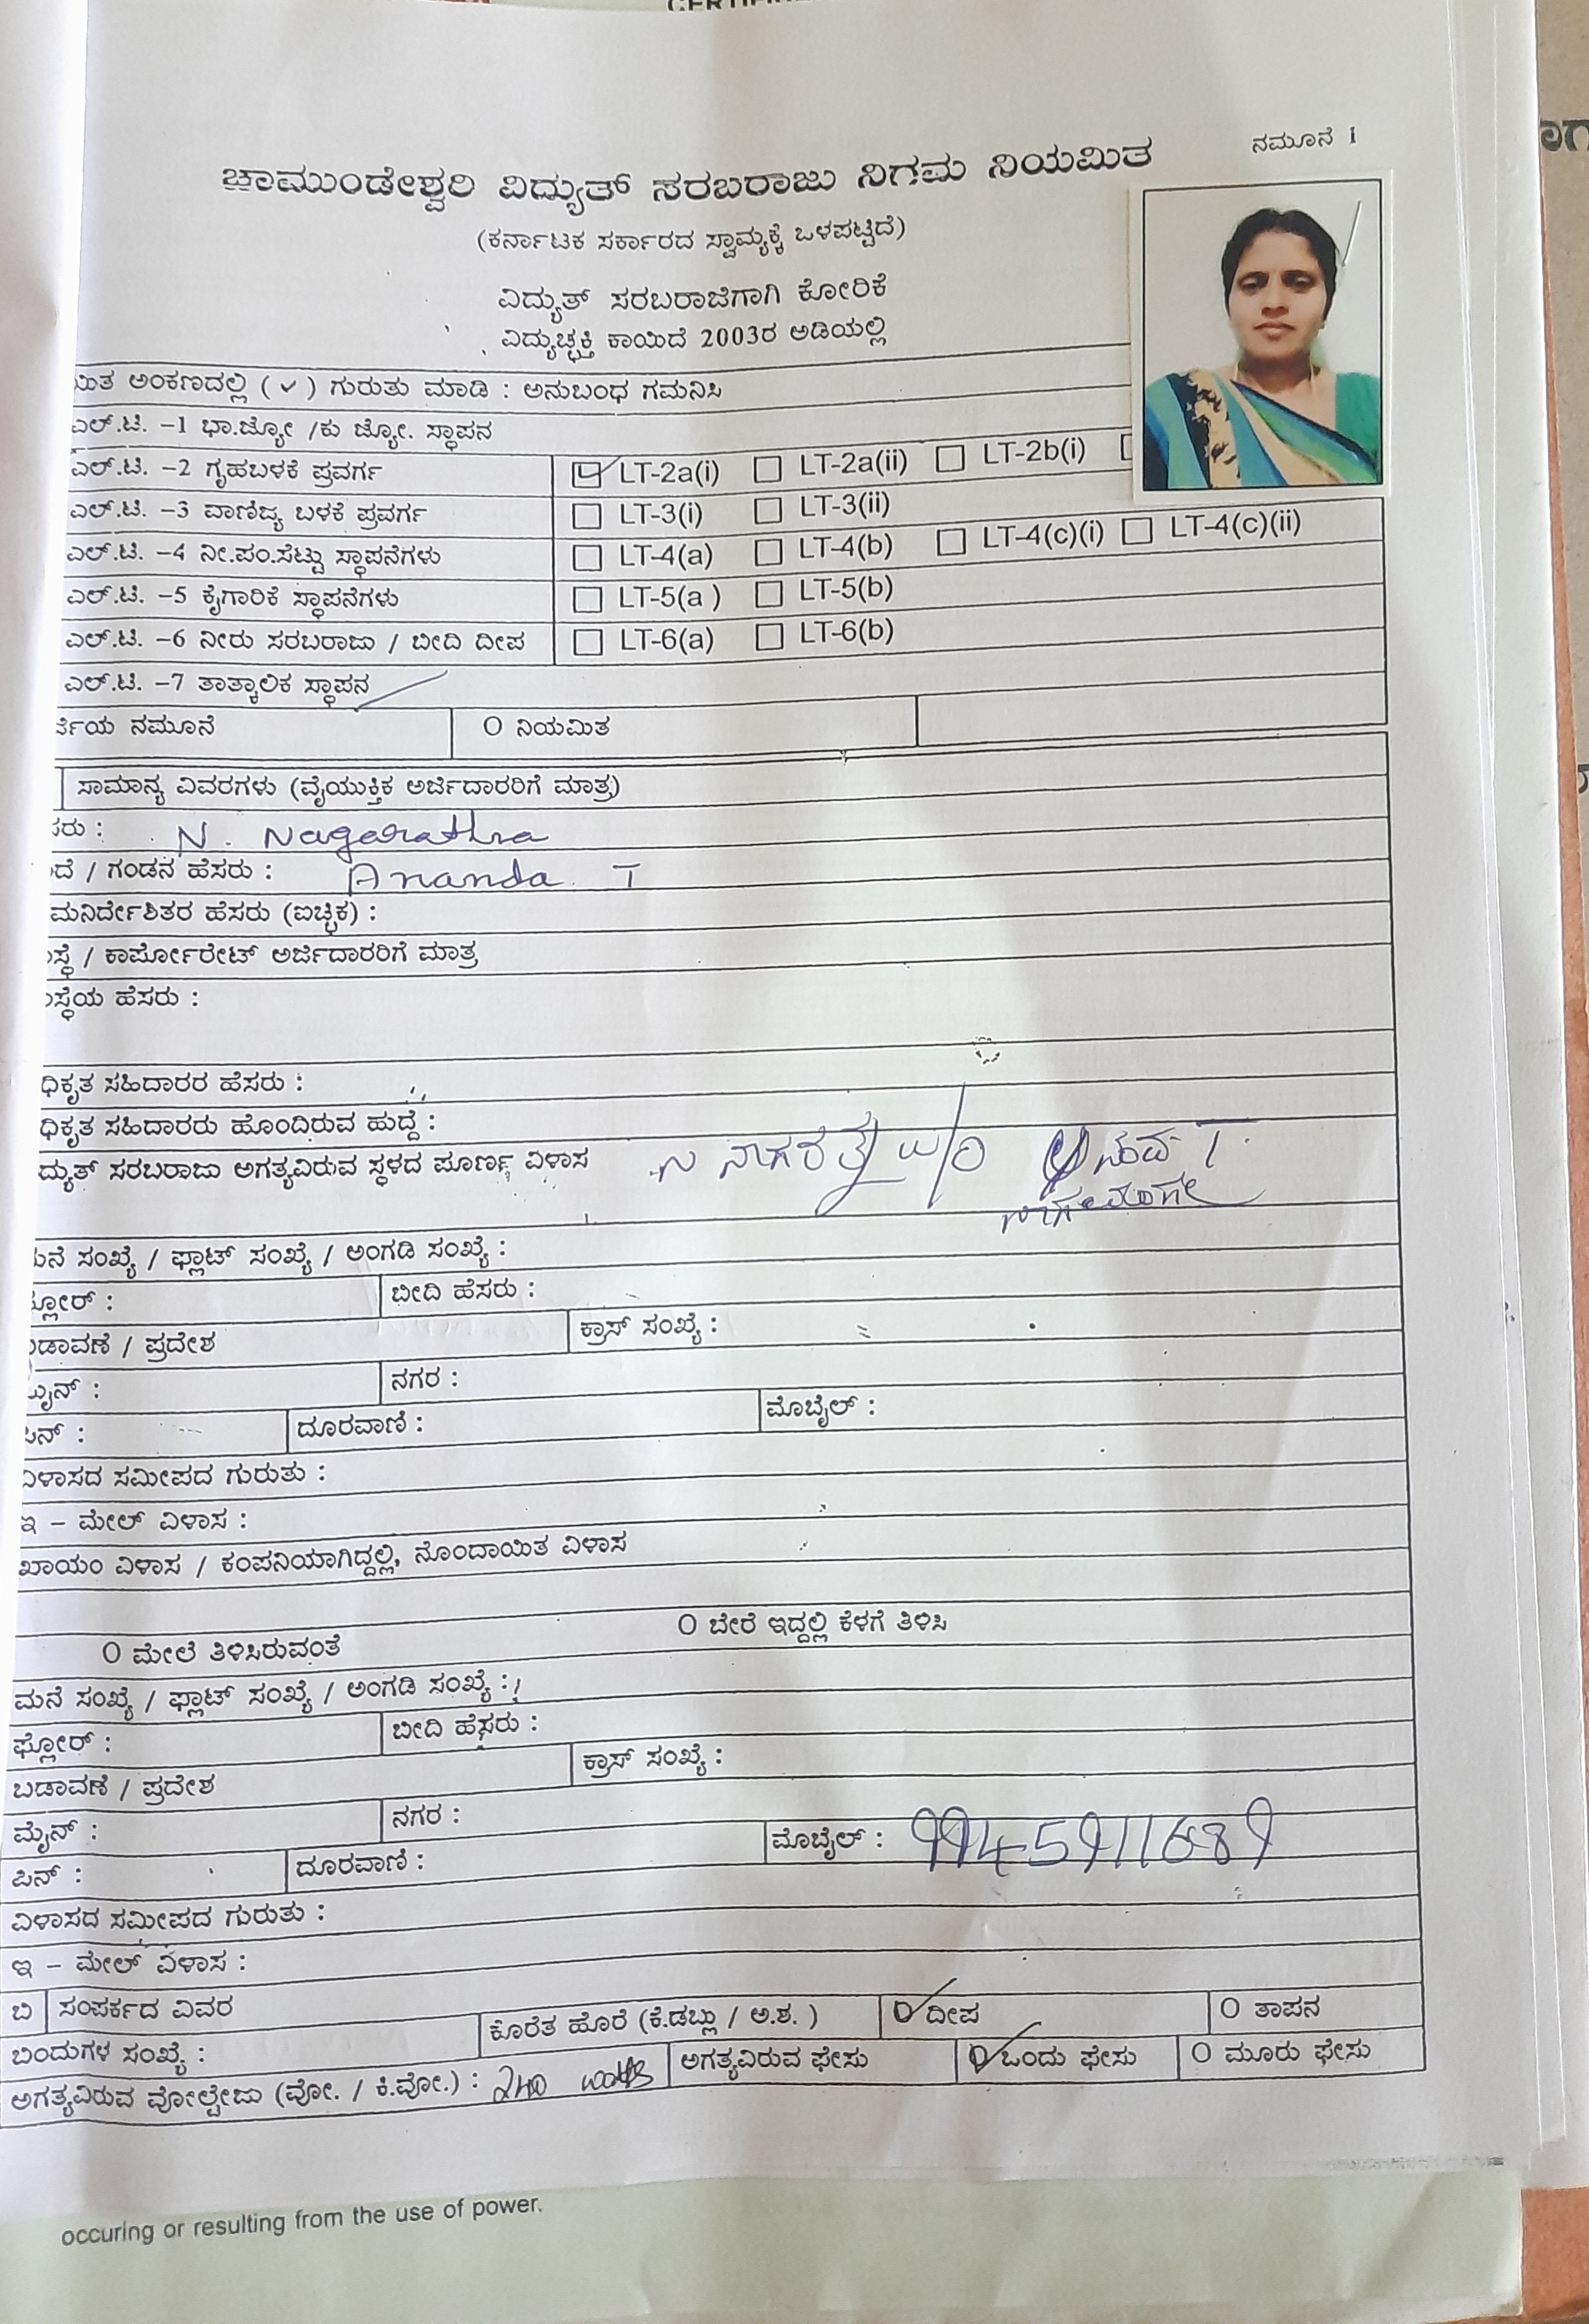 ನಮೂನೆ 1
ಚಾಮುಂಡೇಶ್ವರಿ ವಿದ್ಯುತ್ ಸರಬರಾಜು ನಿಗಮ ನಿಯಮಿತ
(ಕರ್ನಾಟಕ ಸರ್ಕಾರದ ಸ್ವಾಮ್ಯಕ್ಕೆ ಒಳಪಟ್ಟಿದೆ)
ವಿದ್ಯುತ್ ಸರಬರಾಜಿಗಾಗಿ ಕೋರಿಕೆ
ವಿದ್ಯುಚ್ಛಕ್ತಿ ಕಾಯಿದೆ 2003ರ ಅಡಿಯಲ್ಲಿ
ಅಂಕಣದಲ್ಲಿ ( ✓ ) ಗುರುತು ಮಾಡಿ : ಅನುಬಂಧ ಗಮನಿಸಿ
ಎಲ್.ಟಿ. –1 ಭಾ.ಜ್ಯೋ /ಕು ಜ್ಯೋ. ಸ್ಥಾಪನ
ಎಲ್.ಟಿ. –2 ಗೃಹಬಳಕೆ ಪ್ರವರ್ಗ LT-2a(i) LT-2a(ii) LT-2b(i)
ಎಲ್.ಟಿ. –3 ವಾಣಿಜ್ಯ ಬಳಕೆ ಪ್ರವರ್ಗ LT-3(i) LT-3(ii)
ಎಲ್.ಟಿ. –4 ನೀ.ಪಂ.ಸೆಟ್ಟು ಸ್ಥಾಪನೆಗಳು LT-4(a) LT-4(b) LT-4(c)(i) LT-4(c)(ii)
ಎಲ್.ಟಿ. –5 ಕೈಗಾರಿಕೆ ಸ್ಥಾಪನೆಗಳು LT-5(a ) LT-5(b)
ಎಲ್.ಟಿ. –6 ನೀರು ಸರಬರಾಜು / ಬೀದಿ ದೀಪ LT-6(a) LT-6(b)
ಎಲ್.ಟಿ. –7 ತಾತ್ಕಾಲಿಕ ಸ್ಥಾಪನ
ರ್ಜಿಯ ನಮೂನೆ O ನಿಯಮಿತ
ಸಾಮಾನ್ಯ ವಿವರಗಳು (ವೈಯುಕ್ತಿಕ ಅರ್ಜಿದಾರರಿಗೆ ಮಾತ್ರ)
ಸರು : N. Nagarathna
ದೆ / ಗಂಡನ ಹೆಸರು : Ananda T
ಮನಿರ್ದೇಶಿತರ ಹೆಸರು (ಐಚ್ಛಿಕ) :
ಸ್ಥೆ / ಕಾರ್ಪೋರೇಟ್ ಅರ್ಜಿದಾರರಿಗೆ ಮಾತ್ರ
ಸ್ಥೆಯ ಹೆಸರು :
ಧಿಕೃತ ಸಹಿದಾರರ ಹೆಸರು :
ಧಿಕೃತ ಸಹಿದಾರರು ಹೊಂದಿರುವ ಹುದ್ದೆ :
ದ್ಯುತ್ ಸರಬರಾಜು ಅಗತ್ಯವಿರುವ ಸ್ಥಳದ ಪೂರ್ಣ ವಿಳಾಸ ನಾಗರತ್ನ w/o T.
ನೆ ಸಂಖ್ಯೆ / ಫ್ಲಾಟ್ ಸಂಖ್ಯೆ / ಅಂಗಡಿ ಸಂಖ್ಯೆ :
ಫ್ಲೋರ್ : ಬೀದಿ ಹೆಸರು :
ಡಾವಣೆ / ಪ್ರದೇಶ ಕ್ರಾಸ್ ಸಂಖ್ಯೆ :
ಮೈನ್ : ನಗರ :
ಪಿನ್ : ದೂರವಾಣಿ : ಮೊಬೈಲ್ :
ವಿಳಾಸದ ಸಮೀಪದ ಗುರುತು :
ಇ – ಮೇಲ್ ವಿಳಾಸ :
ಖಾಯಂ ವಿಳಾಸ / ಕಂಪನಿಯಾಗಿದ್ದಲ್ಲಿ, ನೊಂದಾಯಿತ ವಿಳಾಸ
O ಮೇಲೆ ತಿಳಿಸಿರುವಂತೆ O ಬೇರೆ ಇದ್ದಲ್ಲಿ ಕೆಳಗೆ ತಿಳಿಸಿ
ಮನೆ ಸಂಖ್ಯೆ / ಫ್ಲಾಟ್ ಸಂಖ್ಯೆ / ಅಂಗಡಿ ಸಂಖ್ಯೆ :
ಫ್ಲೋರ್ : ಬೀದಿ ಹೆಸರು :
ಬಡಾವಣೆ / ಪ್ರದೇಶ ಕ್ರಾಸ್ ಸಂಖ್ಯೆ :
ಮೈನ್ : ನಗರ :
ಪಿನ್ : ದೂರವಾಣಿ : ಮೊಬೈಲ್ : 9945911689
ವಿಳಾಸದ ಸಮೀಪದ ಗುರುತು :
ಇ – ಮೇಲ್ ವಿಳಾಸ :
ಬಿ ಸಂಪರ್ಕದ ವಿವರ
ಬಂದುಗಳ ಸಂಖ್ಯೆ : ಕೊರೆತ ಹೊರೆ (ಕಿ.ಡಬ್ಲು / ಅ.ಶ. ) O ದೀಪ O ತಾಪನ
ಅಗತ್ಯವಿರುವ ವೋಲ್ಟೇಜು (ವೋ. / ಕಿ.ವೋ.) : 240 watts ಅಗತ್ಯವಿರುವ ಫೇಸು O ಒಂದು ಫೇಸು O ಮೂರು ಫೇಸು
occuring or resulting from the use of power.